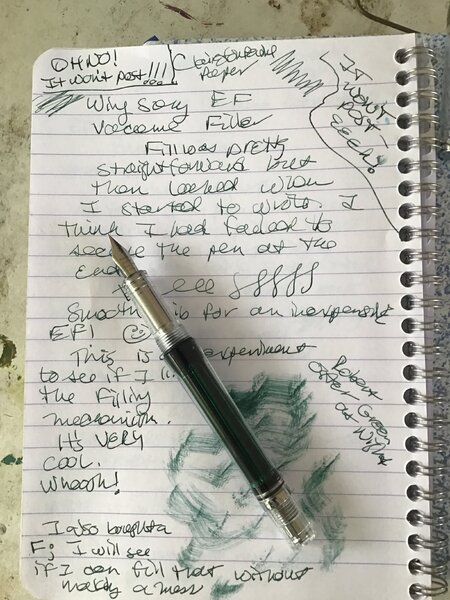 OH NO!
It won't post!!!
Clairefontaine
Paper
IT
WON'T
POST
EEEK!
Wing Sung EF
Vacuume Filler
Fill was pretty
straightforward but
then leaked when
I started to write. I
think I had failed to
secure the pen at the
End
Smooth
is for an inexpensive
EF! ☺
This is experiment
to see if I
the filling
mechanism.
It's VERY
COOL.
Whoosh!
Robert
Oster Green
at Night
I also bought a
F; I will see
if I can fill that without
making a mess